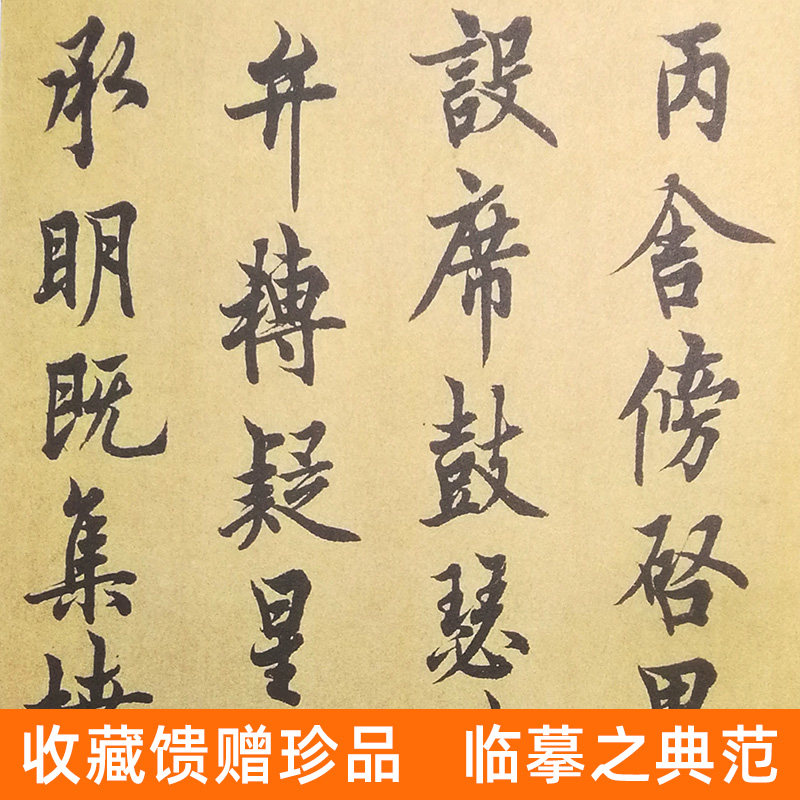 丙舍傍啓甲
設席鼓瑟
弁轉疑星
承明既集墳
收藏馈赠珍品 临摹之典范